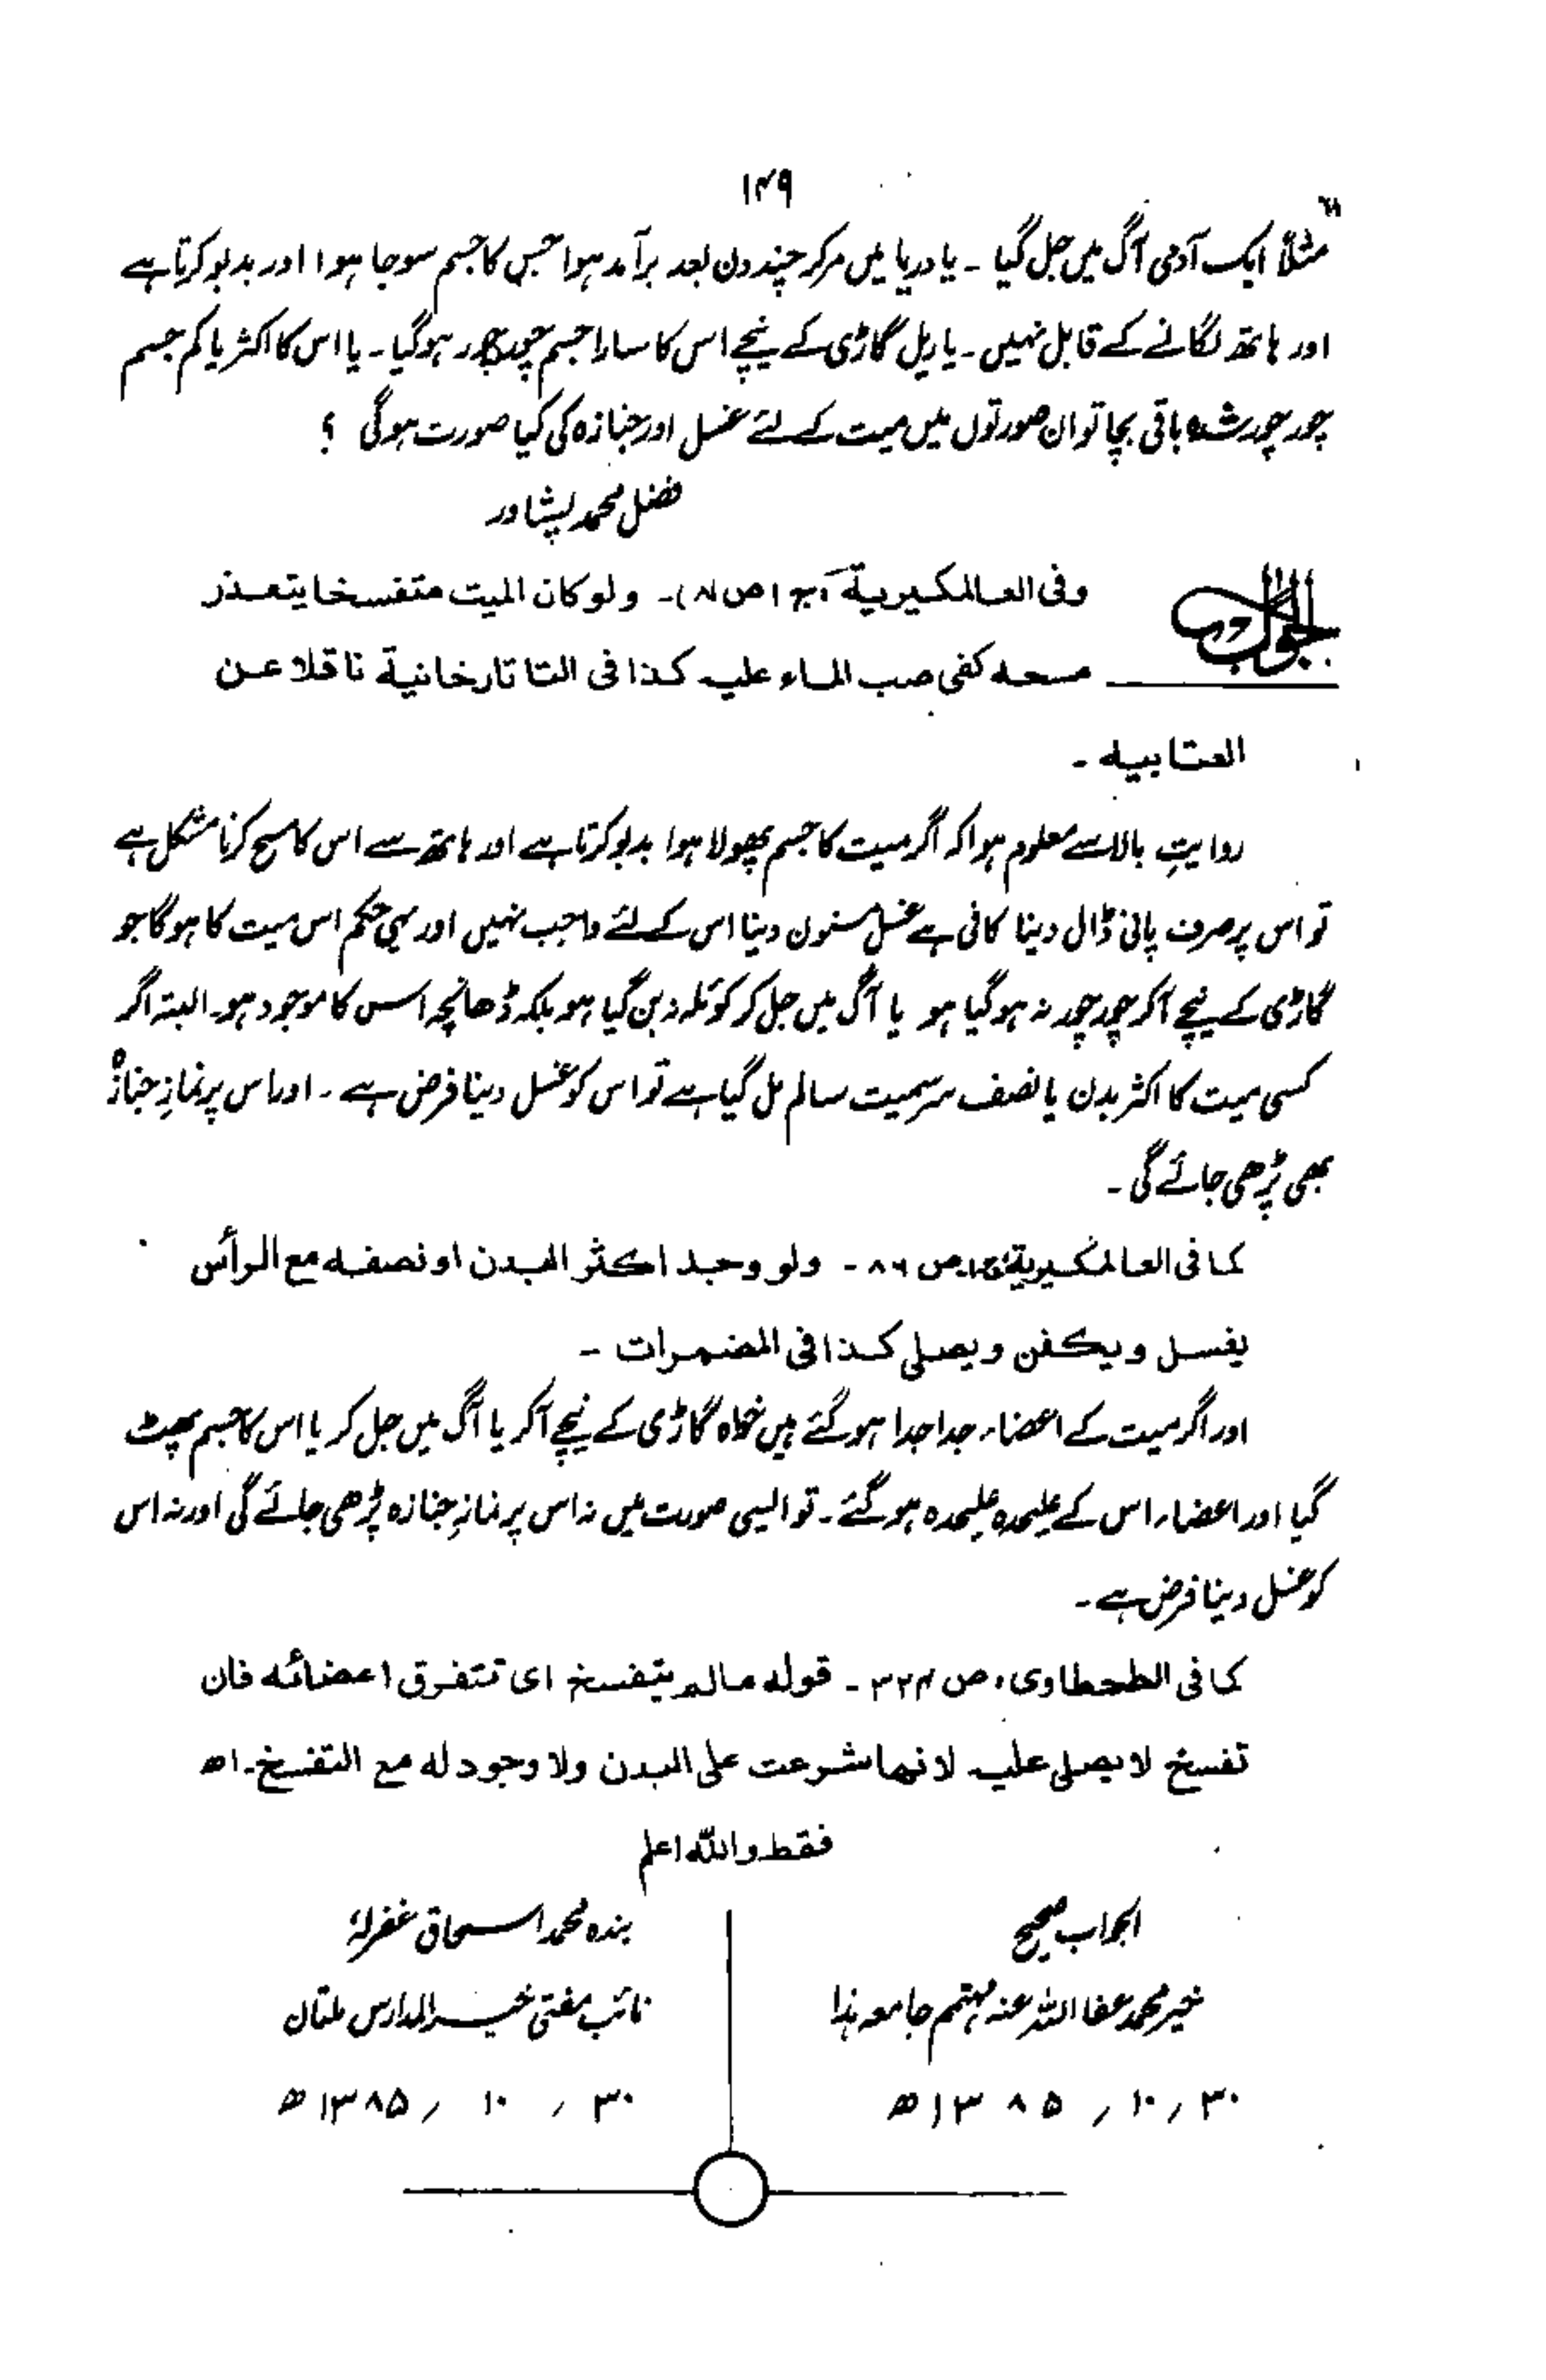 ۱۴۹
مثلاً ایک آدمی آگ میں جل گیا ۔ یا دریا میں مرکر چند دن بعد برآمد ہوا جس کا جسم سوجا ہوا اور بدبو کرتا ہے
اور ہاتھ لگانے کے قابل نہیں ۔ یا ریل گاڑی کے نیچے اس کا سارا جسم چور چور ہوگیا ۔ یا اس کا اکثر یا کم جسم
چور چور شدہ باقی بچا تو ان صورتوں میں میت کے لئے غسل اور جنازہ کی کیا صورت ہوگی ؟
فضل محمد پشاور
الجواب
وفی العالمکیریة، ج ۱ ص ۸) ۔ ولو کان المیت متفسخا یتعذر
مسحه کفی صب الماء علیه کذا فی التاتارخانیة ناقلا عن
العتابیه ۔
روایتِ بالا سے معلوم ہوا کہ اگر میت کا جسم پھولا ہوا بدبو کرتا ہے اور ہاتھ سے اس کا مسح کرنا مشکل ہے
تو اس پر صرف پانی ڈال دینا کافی ہے غسل مسنون دینا اس کے لئے واجب نہیں اور یہی حکم اس میت کا ہوگا جو
گاڑی کے نیچے آکر چور چور نہ ہوگیا ہو یا آگ میں جل کر کوئلہ نہ بن گیا ہو بلکہ ڈھانچہ اس کا موجود ہو۔ البتہ اگر
کسی میت کا اکثر بدن یا نصف سر سمیت سالم مل گیا ہے تو اس کو غسل دینا فرض ہے ۔ اور اس پر نمازِ جنازہ
بھی پڑھی جائے گی ۔
کما فی العالمکیریة ج۱ ص ۸۶ ۔ ولو وجد اکثر البدن او نصفه مع الرأس
یغسل ویکفن ویصلی کذا فی المضمرات ۔
اور اگر میت کے اعضاء جدا جدا ہو گئے ہیں خواہ گاڑی کے نیچے آکر یا آگ میں جل کر یا اس کا جسم پھٹ
گیا اور اعضاء اس کے علیحدہ علیحدہ ہو گئے ۔ تو ایسی صورت میں نہ اس پر نمازِ جنازہ پڑھی جائے گی اور نہ اس
کو غسل دینا فرض ہے ۔
کما فی الطحطاوی، ص ۳۲۴ ۔ قوله مالم یتفسخ ای تتفرق اعضائه فان
تفسخ لا یصلی علیه لانها شرعت علی البدن ولا وجود له مع التفسخ ۔ اھ
فقط واللہ اعلم
الجواب صحیح
خیر محمد عفا اللہ عنہ مہتمم جامعہ ہذا
۳۰ / ۱۰ / ۱۳۸۵ ھ
بندہ محمد اسحاق غفرلہٗ
نائب مفتی خیر المدارس ملتان
۳۰ / ۱۰ / ۱۳۸۵ ھ